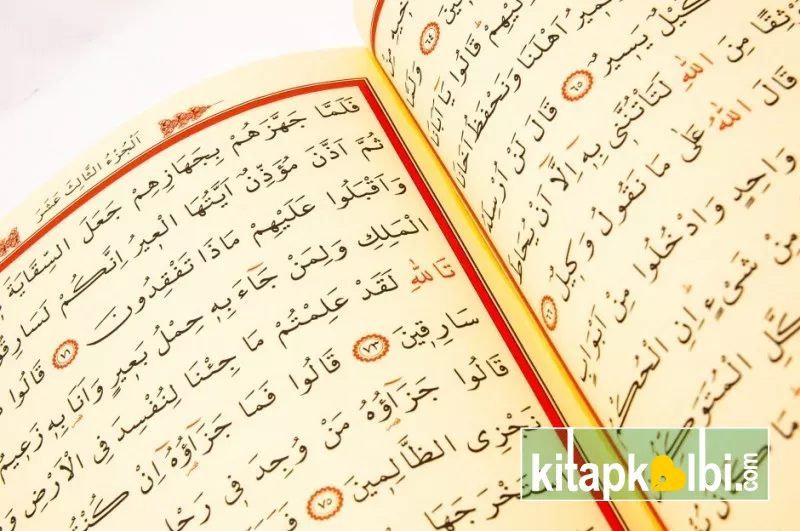 اِلَيْهِمْ قَالُوا يَٓا اَبَانَا
نَمِيرُ اَهْلَنَا وَنَحْفَظُ اَخَانَا
كَيْلٌ يَسِيرٌ ٦٥ قَالَ لَنْ اُرْسِلَهُ
مَوْثِقًا مِنَ اللّٰهِ لَتَأْتُنَّنِي بِهِٓ اِلَّٓا اَنْ يُحَاطَ
قَالَ اللّٰهُ عَلٰى مَا نَقُولُ وَكِيلٌ ٦٦
وَاحِدٍ وَادْخُلُوا مِنْ اَبْوَابٍ
مِنْ شَيْءٍ اِنِ الْحُكْمُ
الْمُتَوَكِّ
اَلْجُزْءُ الثَّالِثَ عَشَرَ
فَلَمَّا جَهَّزَهُمْ بِجَهَازِهِمْ جَعَلَ السِّقَايَةَ
ثُمَّ اَذَّنَ مُؤَذِّنٌ اَيَّتُهَا الْعِيرُ اِنَّكُمْ لَسَارِقُ
وَاَقْبَلُوا عَلَيْهِمْ مَاذَا تَفْقِدُونَ ٧١ قَالُوا
الْمَلِكِ وَلِمَنْ جَٓاءَ بِهِ حِمْلُ بَعِيرٍ وَاَنَا بِهِ زَعِيمٌ
تَاللّٰهِ لَقَدْ عَلِمْتُمْ مَا جِئْنَا لِنُفْسِدَ فِي الْاَرْضِ وَ
سَارِقِينَ ٧٣ قَالُوا فَمَا جَزَٓاؤُهُٓ اِنْ كُنْتُ
قَالُوا جَزَٓاؤُهُ مَنْ وُجِدَ فِي رَحْلِ
نَجْزِي الظَّالِمِينَ ٧٥
اسْتَخْرَجَهَا
kitapkalbi.com